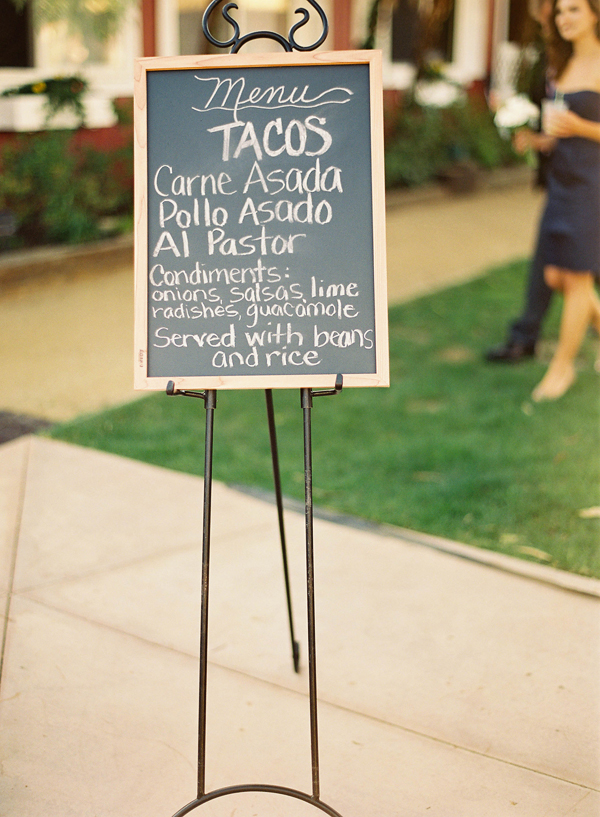 Menu
TACOS
Carne Asada
Pollo Asado
Al Pastor
Condiments:
onions, salsas, lime
radishes, guacamole
Served with beans
and rice